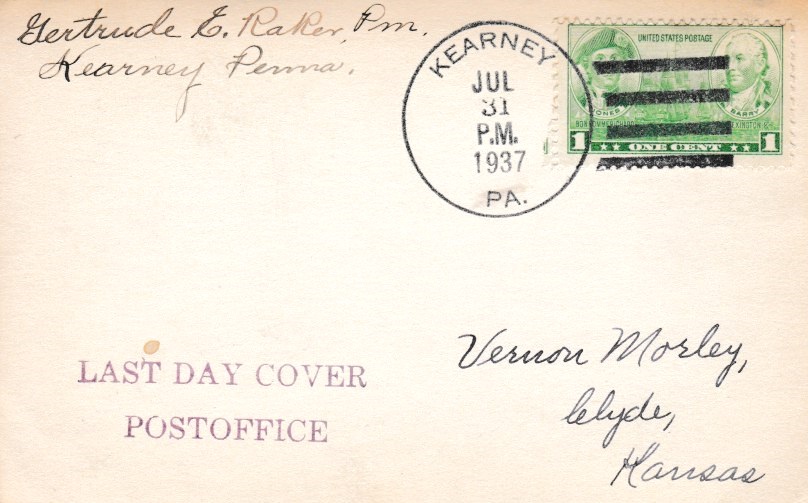 Gertrude E. Raker, Pm.
Kearney Penna.
KEARNEY
JUL
31
P.M.
1937
PA.
UNITED STATES POSTAGE
JONES
BARRY
1 ONE CENT 1
LAST DAY COVER
POSTOFFICE
Vernon Morley,
Clyde,
Kansas